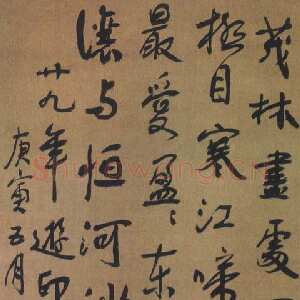 茂林盡處
極目寒江啼
最愛盈々东
讓与恒河沙
廿九年遊印
庚寅五月